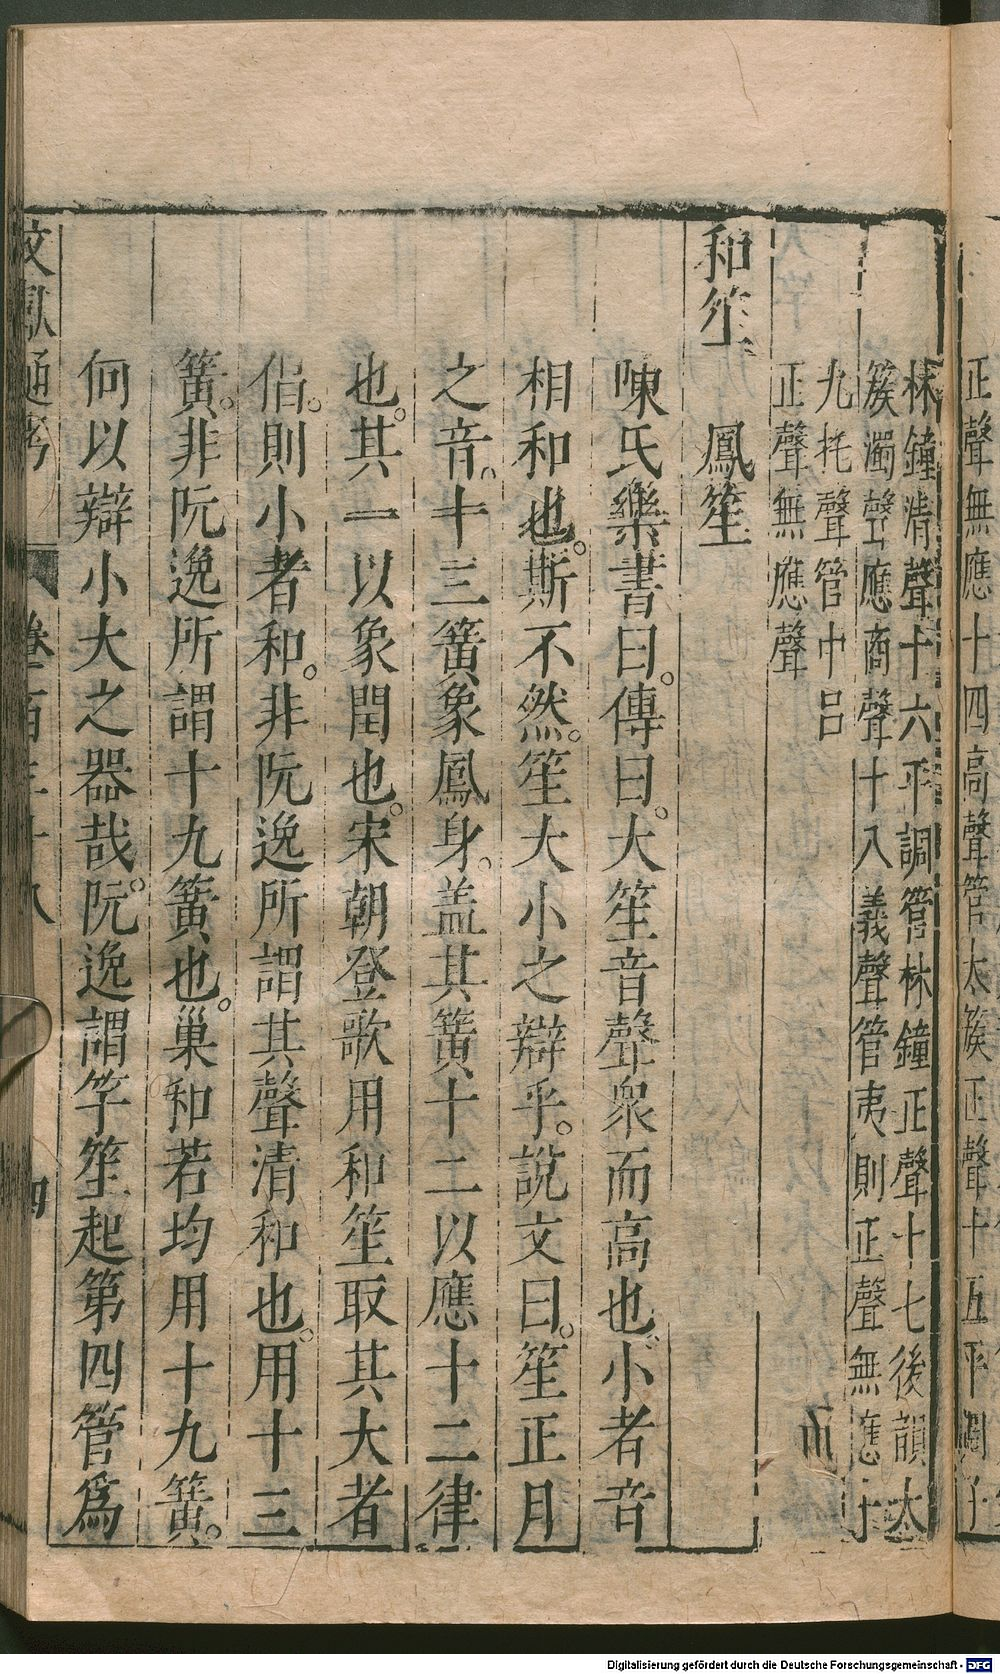 正聲無應十四高聲管太簇正聲十五平調子
林鐘清聲十六平調管林鐘正聲十七後韻太
簇濁聲應商聲十八義聲管夷則正聲無應十
九托聲管中呂
正聲無應聲
和笙　鳳笙
陳氏樂書曰。傳曰。大笙音聲衆而高也。小者音
相和也。斯不然。笙大小之辯乎。說文曰。笙正月
之音。十三簧象鳳身。盖其簧十二以應十二律
也。其一以象閏也。宋朝登歌用和笙取其大者
倡。則小者和。非阮逸所謂其聲清和也。用十三
簧。非阮逸所謂十九簧也。巢和若均用十九簧。
何以辯小大之器哉。阮逸謂竽笙起第四管爲
文獻通考　卷一百三十八　四
Digitalisierung gefördert durch die Deutsche Forschungsgemeinschaft - DFG